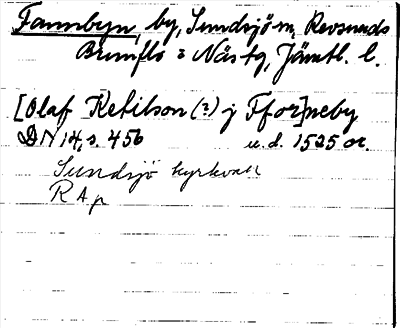 Fannbyn, by, Sundsjö sn, Revsunds
Brunflo o Näs tg, Jämtl. l.
[Olaf Ketilson (?) j Ffor]neby
DN 14, s. 456 u.d. 1525 or.
Sundsjö kyrkvall
RAp